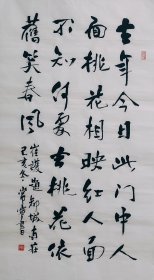 去年今日此门中人
面桃花相映红人面
不知何處去桃花依
舊笑春风
崔護題都城南莊
己亥冬常